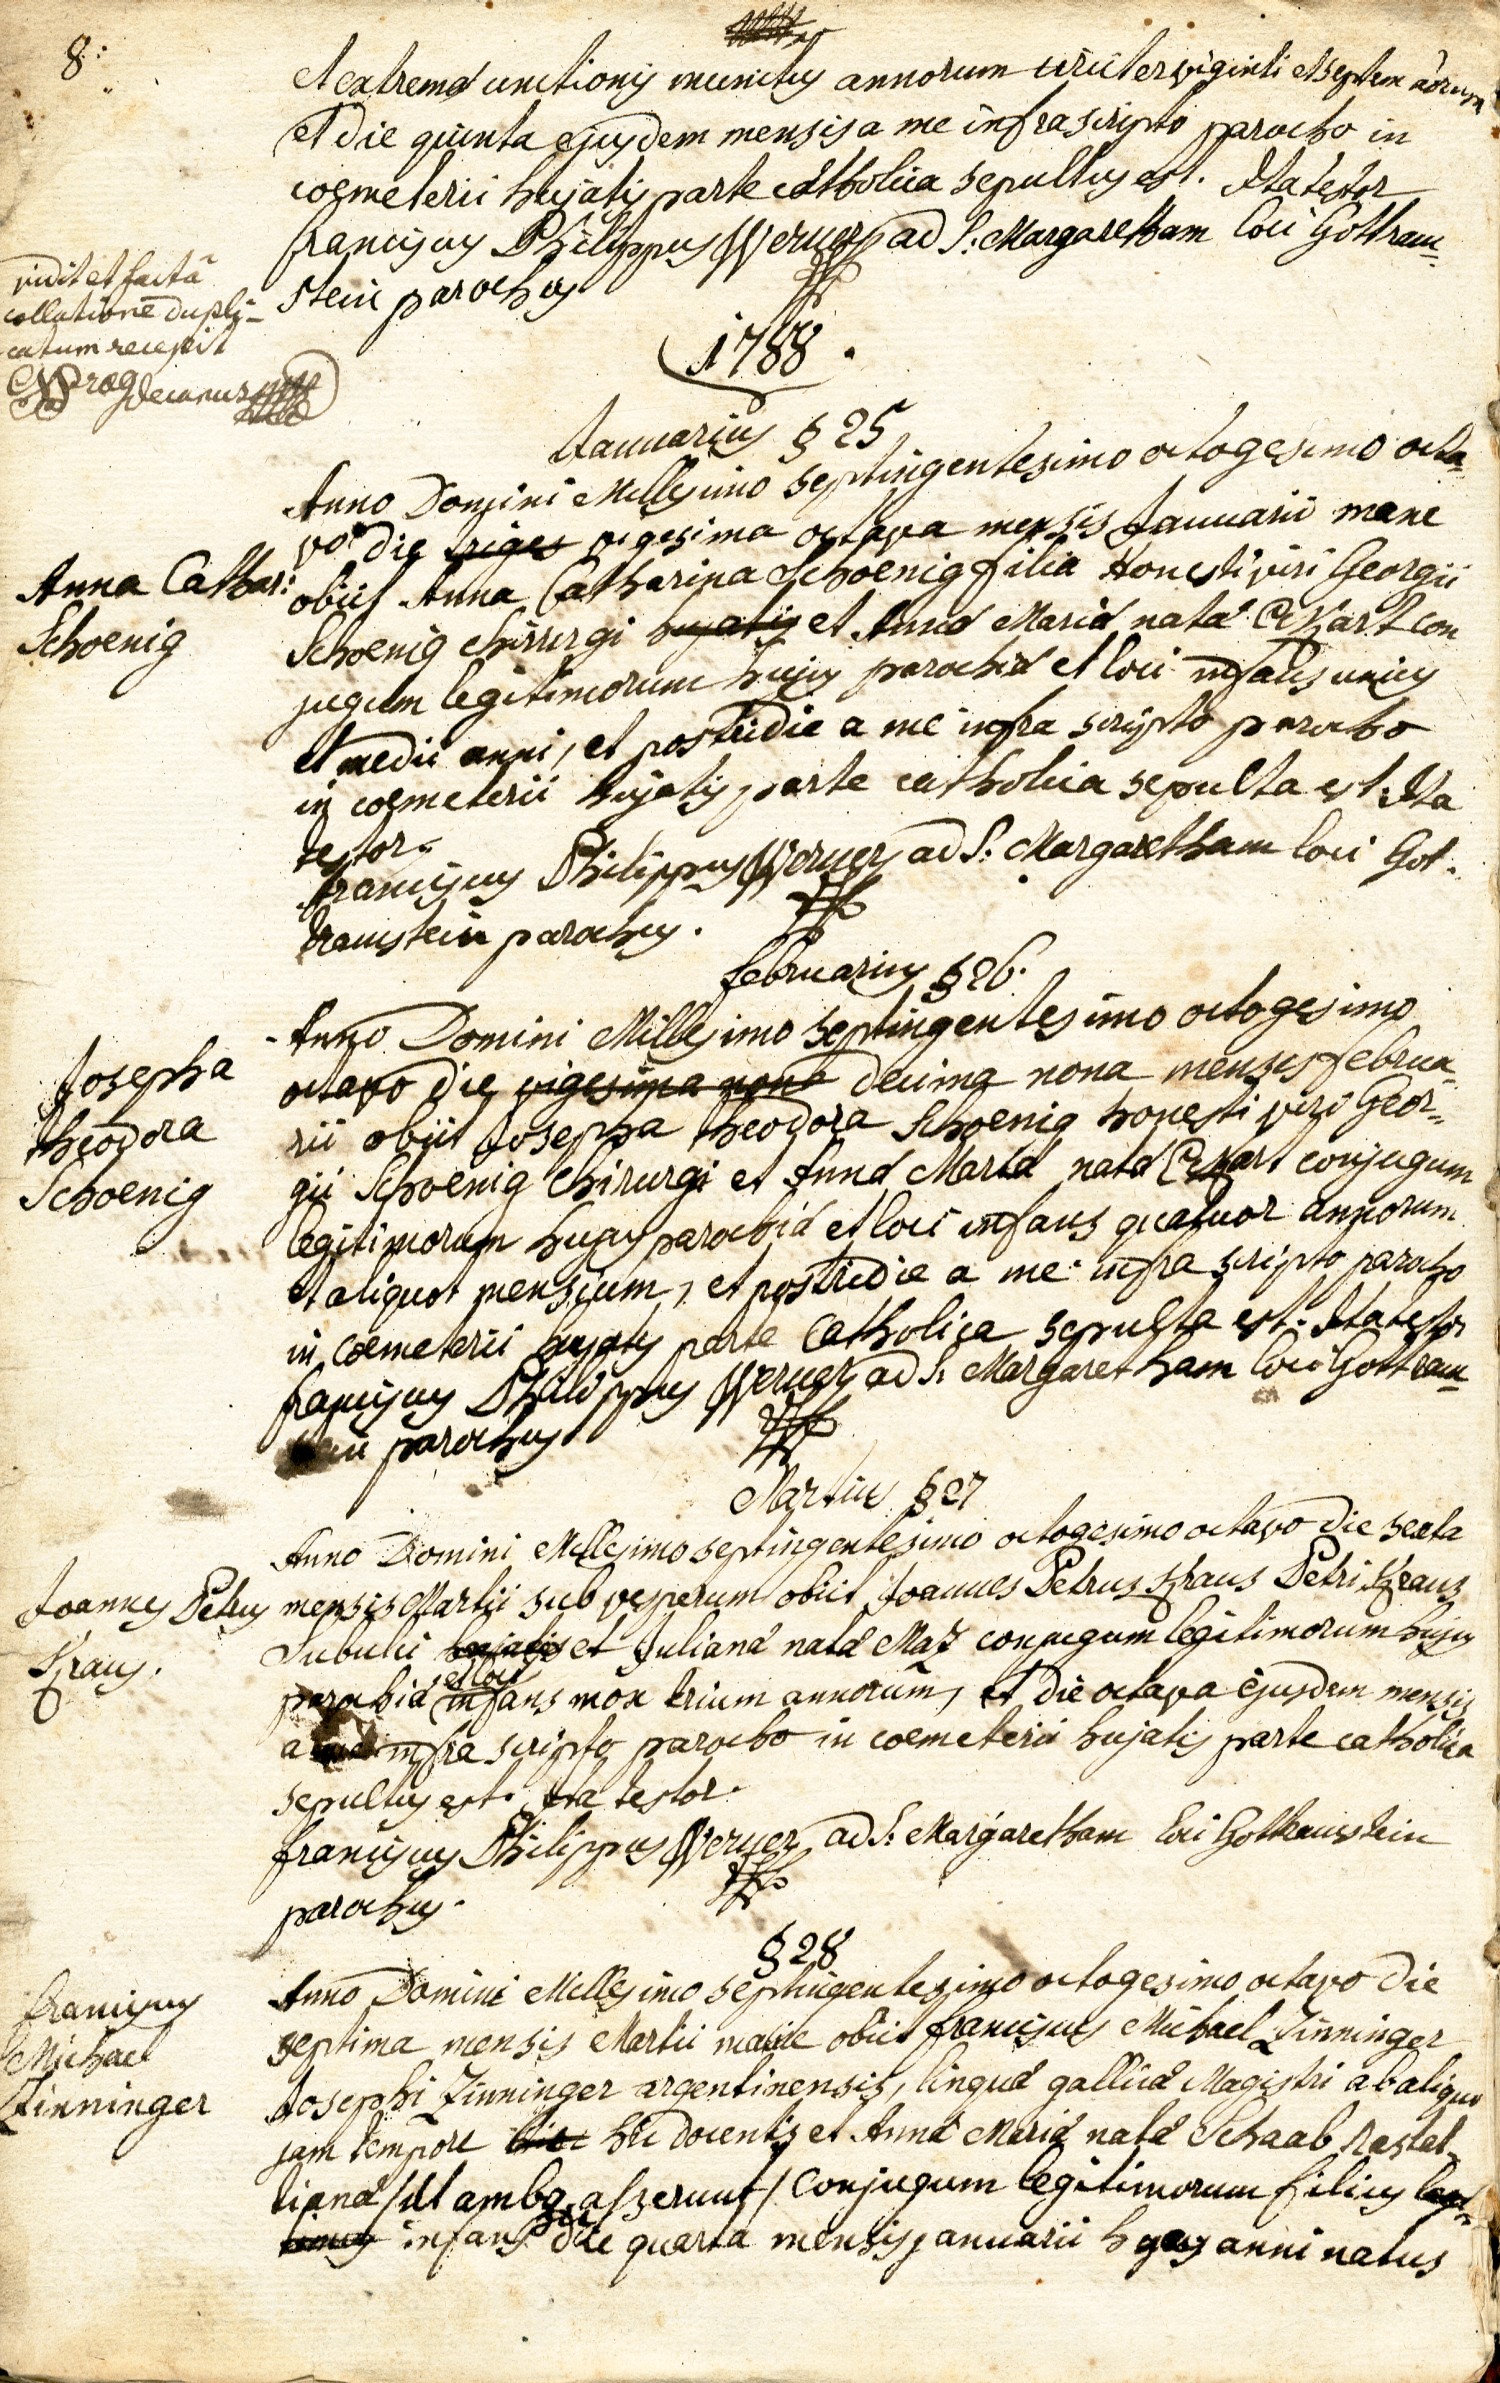 8:
et extremæ unctionis munitus annorum circiter viginti et septem
et die quinta ejusdem mensis a me infra scripto parocho in
coemeterii hujatis parte catholica sepultus est. Ita testor
franciscus Philippus Werner ad S: Margaretham loci Gottram-
stein parochus.
vidit et facta
collatione dupli-
catum recepit
decanus
1788.
Januarius § 25
Anno Domini Millesimo septingentesimo octogesimo octa-
vo die viges vigesima octava mensis Januarii mane
Anna Cathar:
Schoenig
obiit Anna Catharina Schoenig filia Honesti viri Georgii
Schoenig chirurgi hujatis et Annæ Mariæ natæ con
jugum legitimorum hujus parochiæ et loci infans unius
et medii anni, et postridie a me infra scripto parocho
in coemeterii hujatis parte catholica sepulta est. Ita
testor.
franciscus Philippus Werner ad S: Margaretham loci Got-
tramstein parochus.
februarius § 26.
Anno Domini Millesimo septingentesimo octogesimo
Josepha
theodora
Schoenig
octavo die vigesima nona decima nona mensis februa-
rii obiit Josepha theodora Schoenig honesti viri Geor-
gii Schoenig Chirurgi et Annæ Mariæ natæ conjugum
legitimorum hujus parochiæ et loci infans quatuor annorum
et aliquot mensium, et postridie a me infra scripto parocho
in coemeterii hujatis parte Catholica sepulta est. Ita testor
franciscus Philippus Werner ad S: Margaretham loci Gottram-
parochus
Martius § 27
Anno Domini Millesimo septingentesimo octogesimo octavo die sexta
Joannes Petrus
Kraus.
mensis Martii sub vesperum obiit Joannes Petrus Kraus Petri Kraus
Subulci hujatis et Julianæ natæ Maz conjugum legitimorum hujus
et loci
parochiæ infans mox trium annorum, et die octava ejusdem mensis
a me infra scripto parocho in coemeterii hujatis parte catholica
sepultus est. Ita testor.
franciscus Philippus Werner ad S: Margaretham loci Gottramstein
parochus.
§ 28
Anno Domini Millesimo septingentesimo octogesimo octavo die
franciscus
Michael
Zinninger
septima mensis Martii mane obiit franciscus Michael Zinninger
Josephi Zinninger argentinensis, linguæ gallicæ Magistri ab aliquo
jam tempore hic docentis et Annæ Mariæ natæ Schaab
/ut ambo asserunt/ Conjugum legitimorum filius legi-
timus infans die quarta mensis januarii hujus anni natus